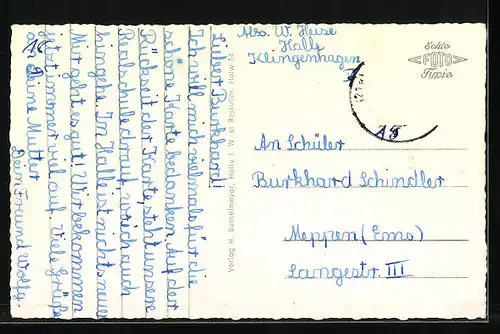 Abs. W. Heise
Halle
Klingenhagen
Echte
FOTO
Typie
18
Lieber Burkhard!
Ich will mich vielmals für die
schöne Karte bedanken. Auf der
Rückseit der Karte, steht unsere
Realschule drauf, wo ich auch
hingehe. In Halle ist nichts neues
Mir geht es gut! Wir bekommen
jetzt immer viel auf. Viele Grüße
an Deine Mutter
Dein Freund Wolfg.
Verlag H. Besselmeyer, Halle i. W.
An Schüler
Burkhard Schindler
Meppen (Ems)
Langestr. III